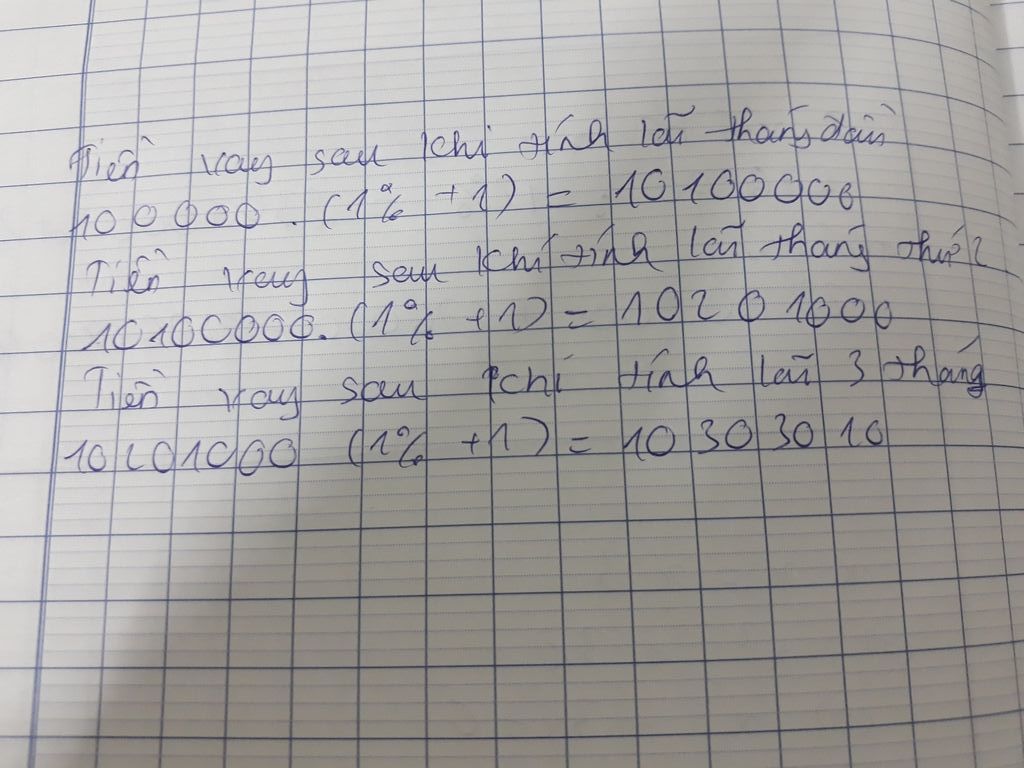 Tiền vay sau khi tính lãi tháng đầu
100000.(1% +1) = 10100000
Tiền vay sau khi tính lãi tháng thứ 2
10100000.(1% +1) = 10201000
Tiền vay sau khi tính lãi 3 tháng
10201000 (1% +1) = 10303010